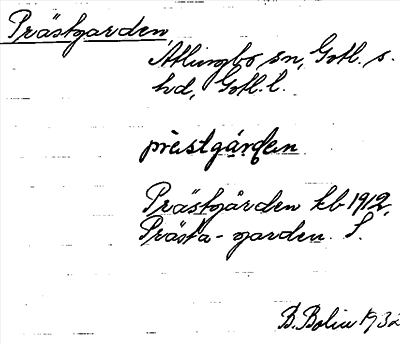 Prästgarden
Atlingbo sn, Gotl. s.
hd, Gotl. l.
prästgården
Prästgården kb 1912.
Prästa-garden. S.
B. Bolin 1932